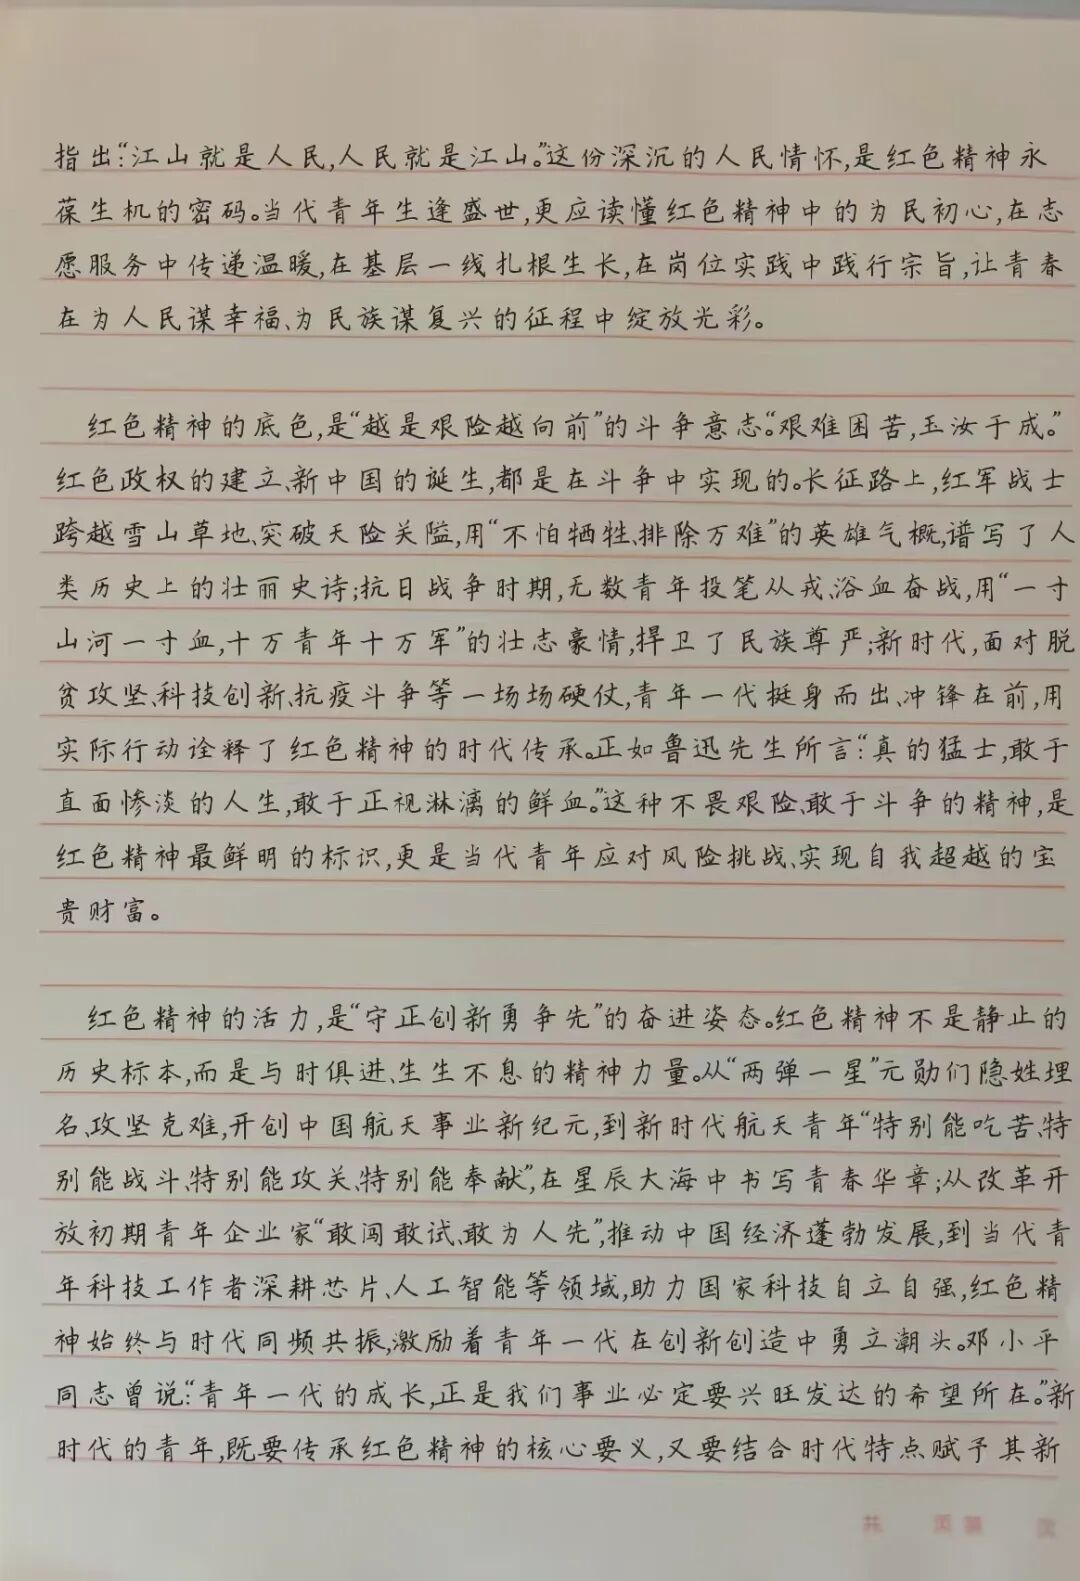 指出:“江山就是人民,人民就是江山。”这份深沉的人民情怀,是红色精神永
葆生机的密码。当代青年生逢盛世,更应读懂红色精神中的为民初心,在志
愿服务中传递温暖,在基层一线扎根生长,在岗位实践中践行宗旨,让青春
在为人民谋幸福、为民族谋复兴的征程中绽放光彩。
红色精神的底色,是“越是艰险越向前”的斗争意志。“艰难困苦,玉汝于成。”
红色政权的建立、新中国的诞生,都是在斗争中实现的。长征路上,红军战士
跨越雪山草地、突破天险关隘,用“不怕牺牲、排除万难”的英雄气概,谱写了人
类历史上的壮丽史诗;抗日战争时期,无数青年投笔从戎、浴血奋战,用“一寸
山河一寸血,十万青年十万军”的壮志豪情,捍卫了民族尊严;新时代,面对脱
贫攻坚、科技创新、抗疫斗争等一场场硬仗,青年一代挺身而出、冲锋在前,用
实际行动诠释了红色精神的时代传承。正如鲁迅先生所言:“真的猛士,敢于
直面惨淡的人生,敢于正视淋漓的鲜血。”这种不畏艰险、敢于斗争的精神,是
红色精神最鲜明的标识,更是当代青年应对风险挑战、实现自我超越的宝
贵财富。
红色精神的活力,是“守正创新勇争先”的奋进姿态。红色精神不是静止的
历史标本,而是与时俱进、生生不息的精神力量。从“两弹一星”元勋们隐姓埋
名、攻坚克难,开创中国航天事业新纪元,到新时代航天青年“特别能吃苦、特
别能战斗、特别能攻关、特别能奉献”,在星辰大海中书写青春华章;从改革开
放初期青年企业家“敢闯敢试、敢为人先”,推动中国经济蓬勃发展,到当代青
年科技工作者深耕芯片、人工智能等领域,助力国家科技自立自强,红色精
神始终与时代同频共振,激励着青年一代在创新创造中勇立潮头。邓小平
同志曾说:“青年一代的成长,正是我们事业必定要兴旺发达的希望所在。”新
时代的青年,既要传承红色精神的核心要义,又要结合时代特点赋予其新
共 页 第 页